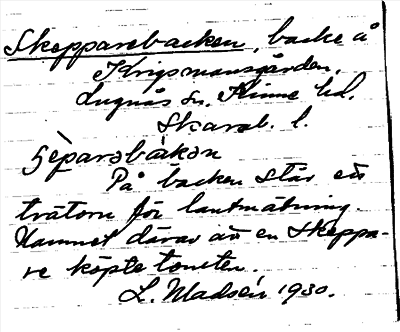 Skepparebacken, backe å
Krigsmansgården,
Lugnås sn. Kinne hd.
Skarab. l.
På backen står ett
trätorn för lantmätning.
Namnet därav att en skeppa-
re köpte tomten.
L. Madsén 1930.